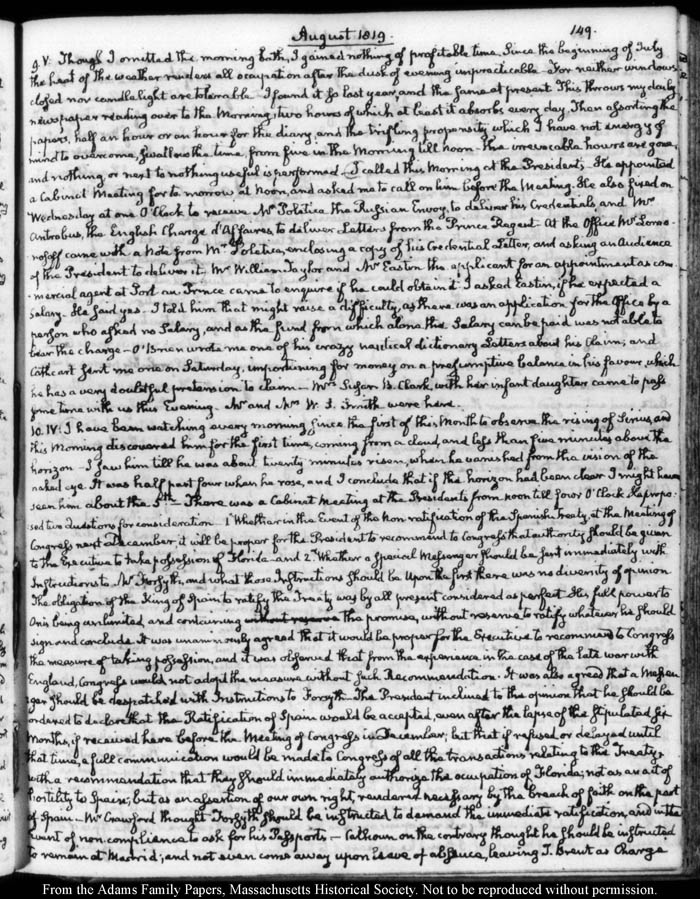 August 1819.
149.
9. V. Though I omitted the morning bath, I gained nothing of profitable time. Since the beginning of July
the heat of the weather renders all occupation after the dusk of evening impracticable. For neither windows
closed nor candlelight are tolerable. I found it so last year, and the same at present. This throws my daily
newspaper reading over to the Morning, two hours of which at least it absorbs every day. Then assorting the
papers, half an hour or an hour for the diary, and the trifling propensity which I have not energy of
mind to overcome, swallows the time, from five in the Morning till noon. The irrevocable hours are gone,
and nothing, or next to nothing useful is performed. I called this Morning at the President's; He appointed
a Cabinet Meeting for to morrow at Noon, and asked me to call on him before the Meeting. He also fixed on
Wednesday at one O'Clock to receive Mr Poletica the Russian Envoy, to deliver his Credentials, and Mr
Antrobus, the English Chargé d'Affaires, to deliver Letters from the Prince Regent. At the Office Mr
came with a Note from Mr Poletica, enclosing a copy of his Credential Letter, and asking an Audience
of the President to deliver it. Mr William Taylor and Mr Eastin the applicant for an appointment as com-
mercial agent at Port au Prince came to enquire if he could obtain it. I asked Eastin, if he expected a
Salary. He said yes. I told him that might raise a difficulty, as there was an application for the Office by a
person who asked no Salary, and as the fund from which alone the Salary can be paid was not able to
bear the charge — O'Brien wrote me one of his crazy nautical dictionary Letters about his Claim; and
Cathcart sent me one on Saturday, importuning for money on a presumptive balance in his favour, which
he has a very doubtful pretension to claim — Mrs Susan B. Clark, with her infant daughter came to pass
some time with us this Evening. Mr and Mrs W. S. Smith were here.
10. IV: I have been watching every morning, since the first of this Month to observe the rising of Sirius, and
this Morning discovered him for the first time, coming from a cloud, and less than five minutes above the
horizon — I saw him till he was about twenty minutes risen, when he vanished from the vision of the
naked eye. It was half past four when he rose, and I conclude that if the horizon had been clear I might have
seen him about the 5th — There was a Cabinet Meeting at the Presidents from noon till four O'Clock. He propo-
sed two Questions for consideration — 1 Whether in the Event of the non ratification of the Spanish Treaty, at the Meeting of
Congress next December, it will be proper for the President to recommend to Congress that authority should be given
to the Executive to take possession of Florida — and 2d Whether a special Messenger should be sent immediately with
Instructions to Mr Forsyth, and what those Instructions should be. Upon the first there was no diversity of opinion
The obligation of the King of Spain to ratify the Treaty was by all present considered as perfect. His full power to
Onis being unlimited, and containing without reserve the promise, without reserve to ratify whatever he should
sign and conclude. It was unanimously agreed that it would be proper for the Executive to recommend to Congress
the measure of taking possession, and it was observed that from the experience in the case of the late war with
England, Congress would not adopt the measure without such Recommendation. It was also agreed that a Messen
ger should be despatched with Instructions to Forsyth. The President inclined to the opinion that he should be
ordered to declare that the Ratification of Spain would be accepted, even after the lapse of the stipulated six
Months, if received here before the Meeting of Congress in December; but that if refused or delayed until
that time, a full communication would be made to Congress of all the transactions relating to the Treaty,
with a recommendation that they should immediately authorize the occupation of Florida; not as an act of
hostility to Spain, but as an assertion of our own right, rendered necessary by the breach of faith on the part
of Spain — Mr Crawford thought Forsyth should be instructed to demand the immediate ratification, and in the
event of non-compliance to ask for his Passports — Calhoun on the contrary thought he should be instructed
to remain at Madrid; and not even come away upon leave of absence, leaving T. Brent as Chargé
From the Adams Family Papers, Massachusetts Historical Society. Not to be reproduced without permission.